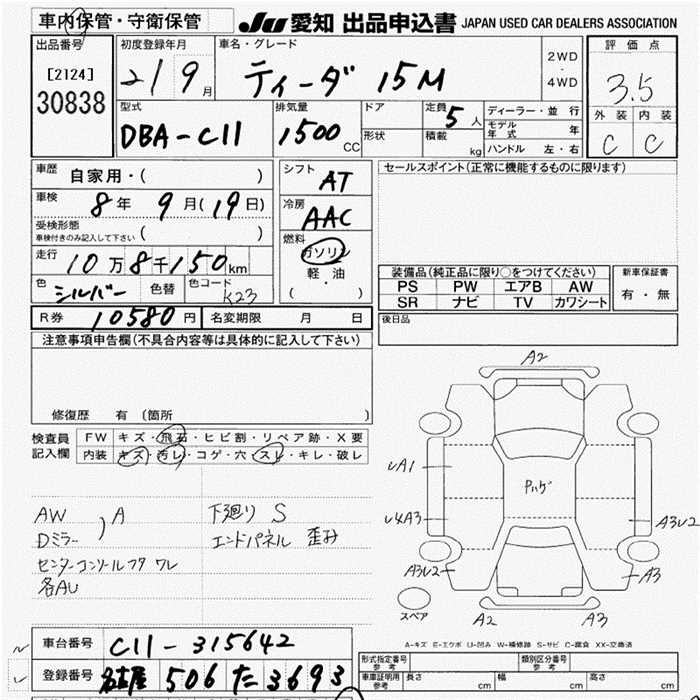 車内保管・守衛保管
JU 愛知 出品申込書 JAPAN USED CAR DEALERS ASSOCIATION
出品番号
[2124]
30838
初度登録年月
21 9月
車名・グレード
ティーダ 15M
2WD
・
4WD
評価点
3.5
外装 内装
C C
型式
DBA-C11
排気量
1500 CC
ドア
形状
定員 5人
積載 kg
ディーラー・並行
モデル年式 年
ハンドル 左・右
車歴 自家用・( )
車検 8年 9月(19日)
受検形態
車検付きのみ記入して下さい ( )
走行 10万8千150km
色 シルバー 色替 色コード K23
シフト AT
冷房 AAC
燃料
ガソリン
軽・油
( )
セールスポイント(正常に機能するものに限ります)
装備品(純正品に限り○をつけてください)
PS PW エアB AW
SR ナビ TV カワシート
新車保証書
有・無
R券 10580円 名変期限 月 日
後日品
注意事項申告欄(不具合内容等は具体的に記入して下さい)
修復歴 有 〔箇所 〕
検査員記入欄
FW キズ・飛石・ヒビ割・リペア跡・X要
内装 キズ・汚レ・コゲ・穴・スレ・キレ・破レ
AW
Dミラー ) A
センターコンソールフタ ワレ
各AU
下廻り S
エンドパネル 歪み
A2
A1
A3
A3U2
A3U2
A3
A2
A3
スペア
A-キズ E-エクボ U-凹み W-補修跡 S-サビ C-腐食 XX-交換済
車台番号 C11-315642
登録番号 名古屋 506 た 3693
形式指定番号
参考
類別区分番号
参考
車庫証明用
参考
長さ cm 幅 cm 高さ cm